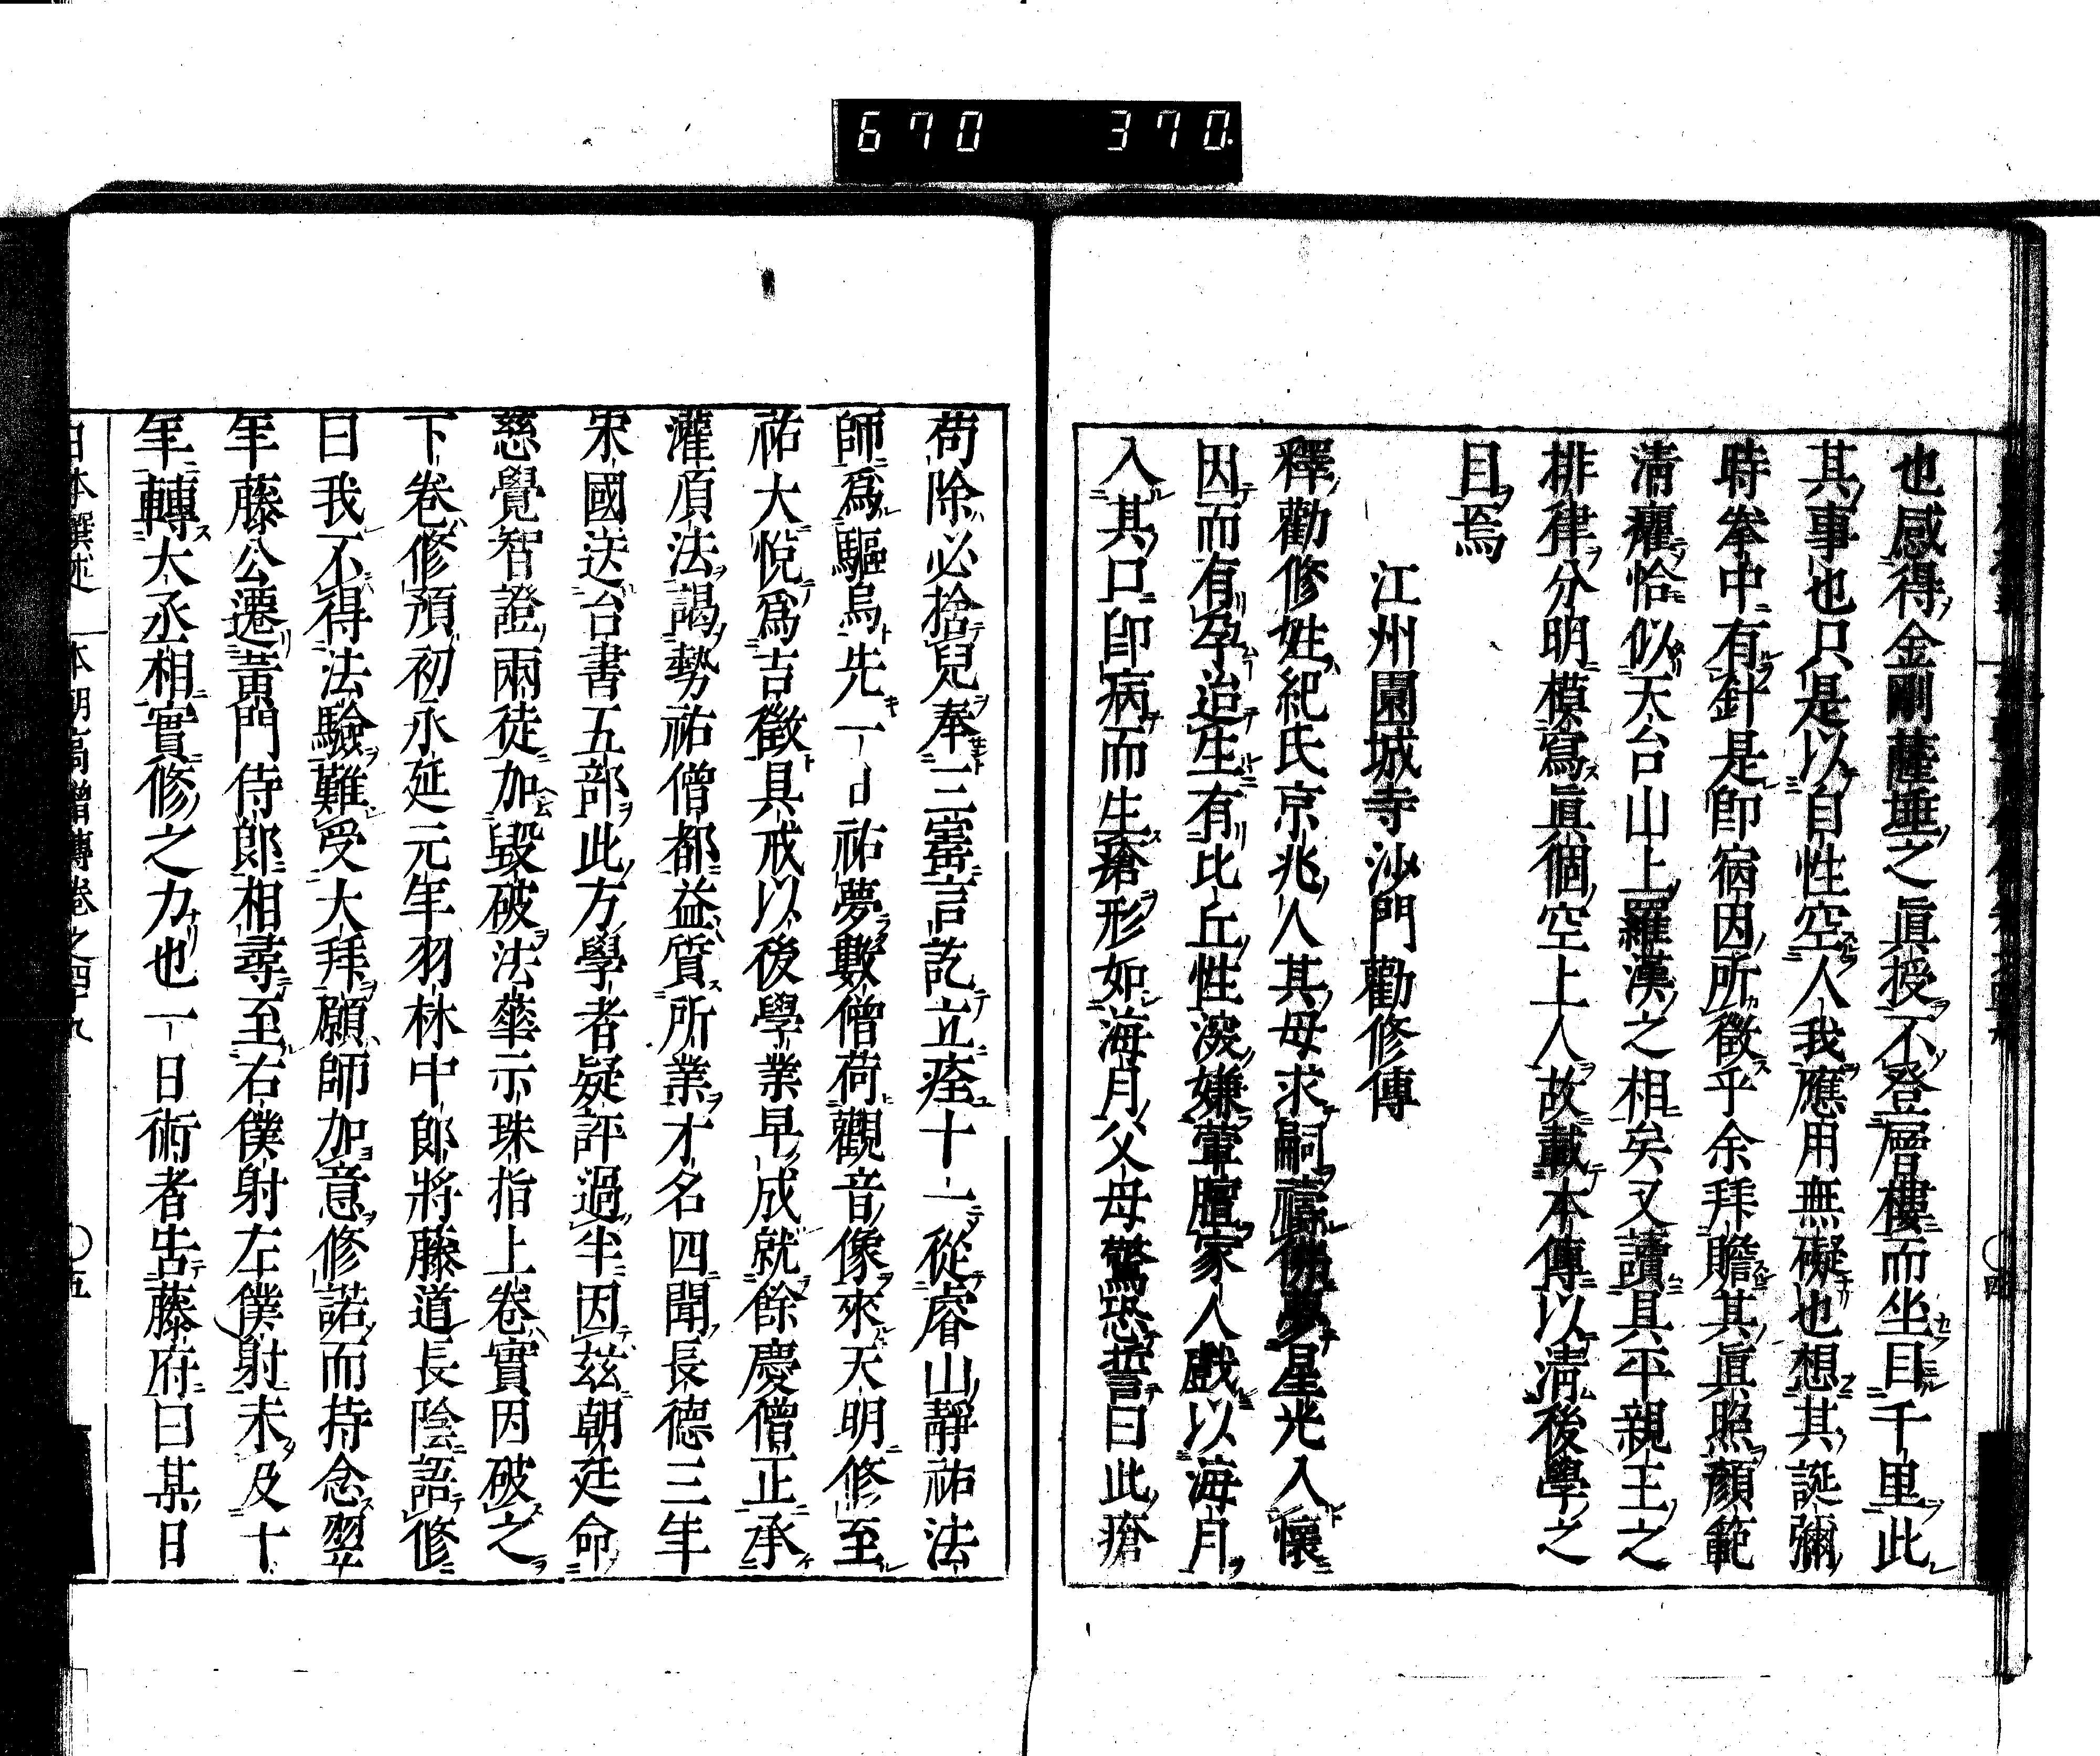 670 370
也感得金剛薩埵之眞授不登層樓而坐目千里此
其事也只是以自性空人我應用無礙也想其誕彌
時拳中有針是卽宿因所徵乎余拜瞻其眞照顏範
淸癯恰似天台山上羅漢之相矣又讀具平親王之
排律分明模寫眞個空上人故載本傳以淸後學之
目焉
江州園城寺沙門勸修傳
釋勸修姓紀氏京兆人其母求嗣禱佛夢星光入懷
因而有孕迨生有比丘性潑嫌葷膻家人戲以海月
入其口卽病而生瘡形如海月父母驚恐誓曰此瘡
〇四
苟除必捨兒奉三寶言訖立痊十一從睿山靜祐法
師爲驅烏先一日祐夢數僧荷觀音像來天明修至
祐大悅爲吉徵具戒以後學業早成就餘慶僧正承
灌頂法謁勢祐僧都益質所業才名四聞長德三年
宋國送台書五部此方學者疑評過半因茲朝廷命
慈覺智證兩徒加毀破法華示珠指上卷實因破之
下卷修預初永延元年羽林中郎將藤道長陰語修
曰我不得法驗難受大拜願師加意修諾而持念翌
年藤公遷黃門侍郎相尋至右僕射左僕射未及十
年轉大丞相實修之力也一日術者告藤府曰某日
日本撰述 本朝高僧傳卷之四十九 〇五